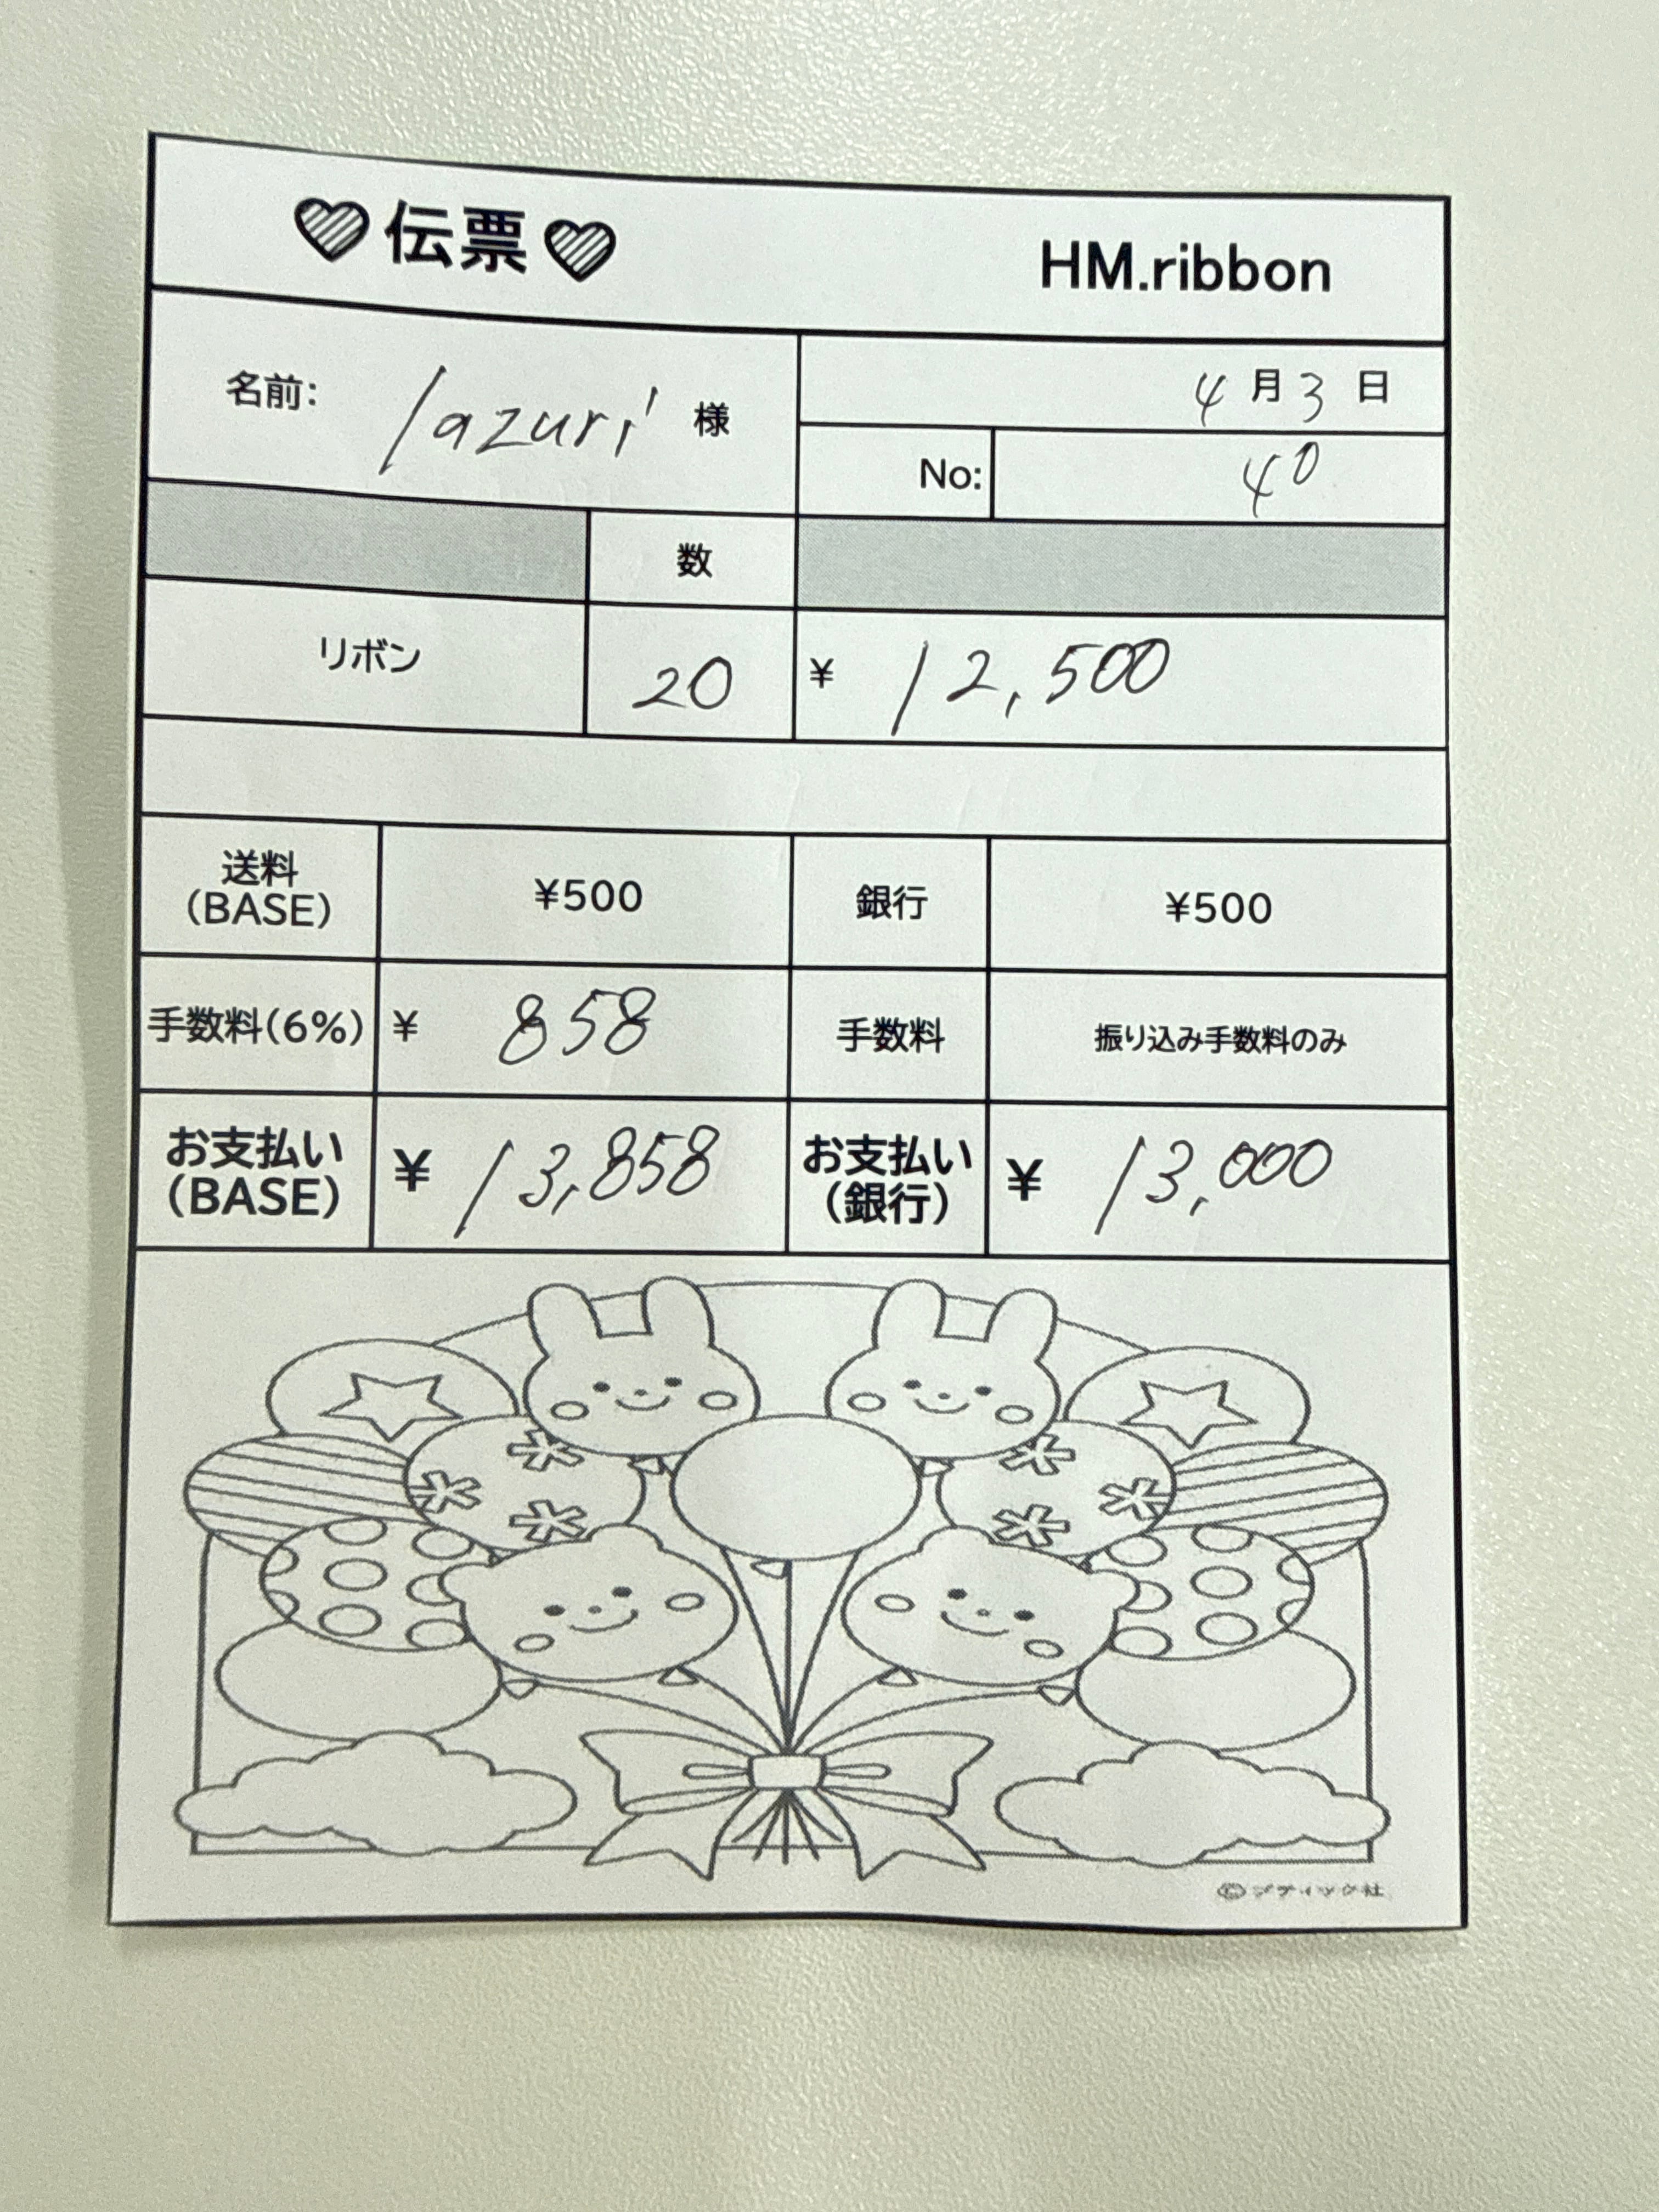 伝票 HM.ribbon
名前: lazuri 様
4月3日
No: 40
数
リボン 20 ¥ 12,500
送料(BASE) ¥500 銀行 ¥500
手数料(6%) ¥ 858 手数料 振り込み手数料のみ
お支払い(BASE) ¥ 13,858 お支払い(銀行) ¥ 13,000
©ブティック社